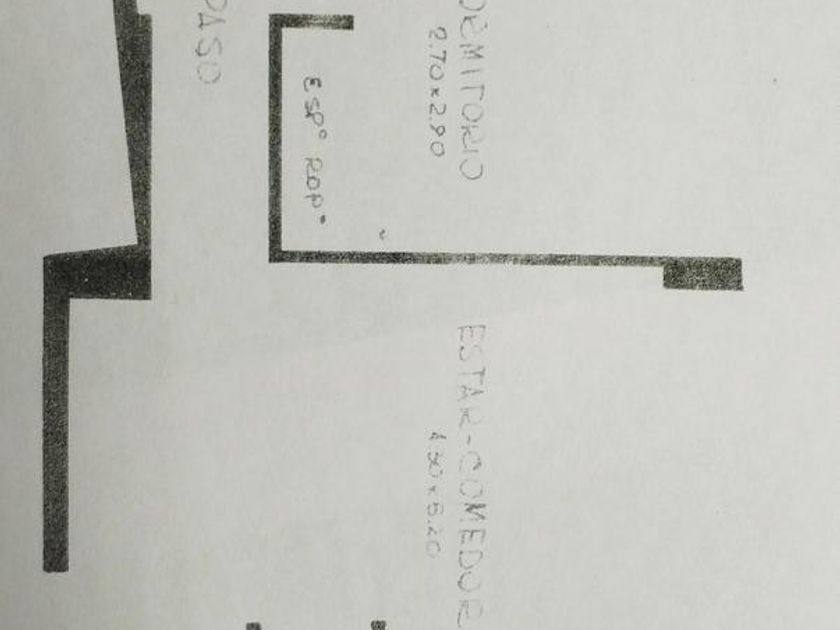 PASO
DORMITORIO
2.70x2.90
ESPº ROPº
ESTAR-COMEDOR
4.50x5.20